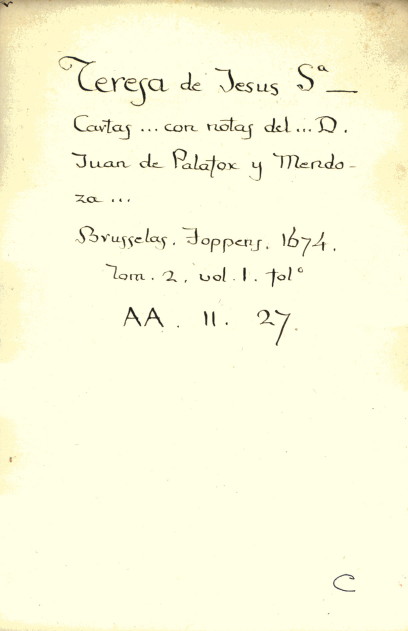 Teresa de Jesus Sª —
Cartas ... con notas del ... D.
Juan de Palafox y Mendo-
za ...
Brusselas. Foppens. 1674.
Tom. 2. vol. 1. folº
AA. 11. 27.
C